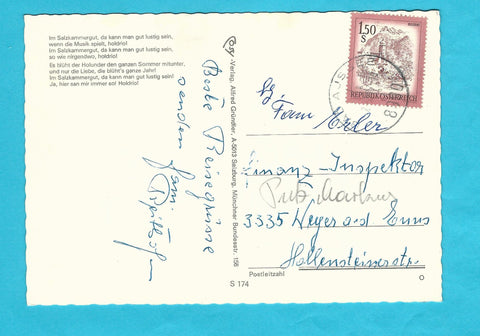 Im Salzkammergut, da kann man gut lustig sein,
wenn die Musik spielt, holdrio!
Im Salzkammergut, da kann man gut lustig sein,
so wie nirgendwo, holdrio!
Es blüht der Holunder den ganzen Sommer mitunter,
und nur die Liebe, die blüht's ganze Jahr!
Im Salzkammergut, da kann man gut lustig sein!
Ja, hier san mir immer so! Holdrio!
Beste Reisegrüsse
senden
-Verlag, Alfred Gründler, A-5013 Salzburg, Münchner Bundesstr. 156
1.50
S
REPUBLIK ÖSTERREICH
Fam. Erler
Finanz-Inspektor
3335 Weyer a.d. Enns
Hollensteinerstr.
Postleitzahl
S 174